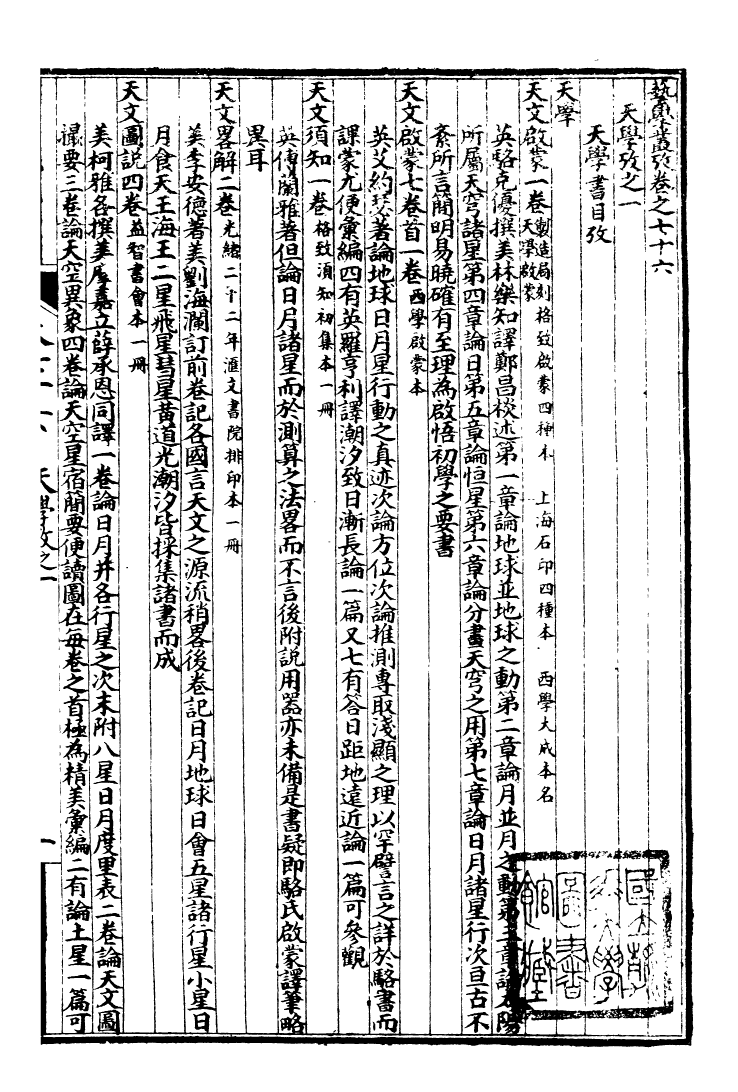 藝學叢攷卷之七十六
天學攷之一
天學書目攷
天學
天文啟蒙一卷 製造局刻格致啟蒙四種本 上海石印四種本 西學大成本名天學啟蒙
英駱克優撰美林樂知譯鄭昌棪述第一章論地球並地球之動第二章論月並月之動第三章論太陽
所屬天穹諸星第四章論日第五章論恒星第六章論分畫天穹之用第七章論日月諸星行次亘古不
紊所言簡明易曉確有至理為啟悟初學之要書
天文啟蒙七卷首一卷 西學啟蒙本
英艾約瑟著論地球日月星行動之真迹次論方位次論推測專取淺顯之理以罕譬言之詳於駱書而
課蒙尤便彙編四有英羅亨利譯潮汐致日漸長論一篇又七有答日距地遠近論一篇可參觀
天文須知一卷 格致須知初集本一冊
英傅蘭雅著但論日月諸星而於測算之法畧而不言後附說用器亦未備是書疑即駱氏啟蒙譯筆略
異耳
天文畧解二卷 光緒二十二年滙文書院排印本一冊
美李安德著美劉海瀾訂前卷記各國言天文之源流稍畧後卷記日月地球日會五星諸行星小星日
月食天王海王二星飛星彗星黃道光潮汐皆採集諸書而成
天文圖說四卷 益智書會本一冊
美柯雅各撰美摩嘉立薛承恩同譯一卷論日月并各行星之次末附八星日月度里表二卷論天文圖
撮要三卷論天空異象四卷論天空星宿簡要便讀圖在每卷之首極為精美彙編二有論土星一篇可
天學攷之一
一